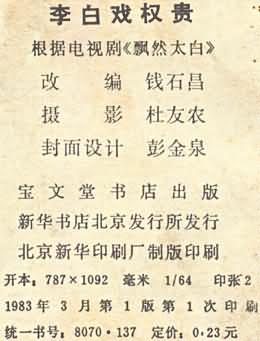 李白戏权贵
根据电视剧《飘然太白》
改 编 钱石昌
摄 影 杜友农
封面设计 彭金泉
宝文堂书店出版
新华书店北京发行所发行
北京新华印刷厂制版印刷
开本：787×1092 毫米 1/64 印张2
1983年3月第1版第1次印刷
统一书号：8070·137 定价：0.23元